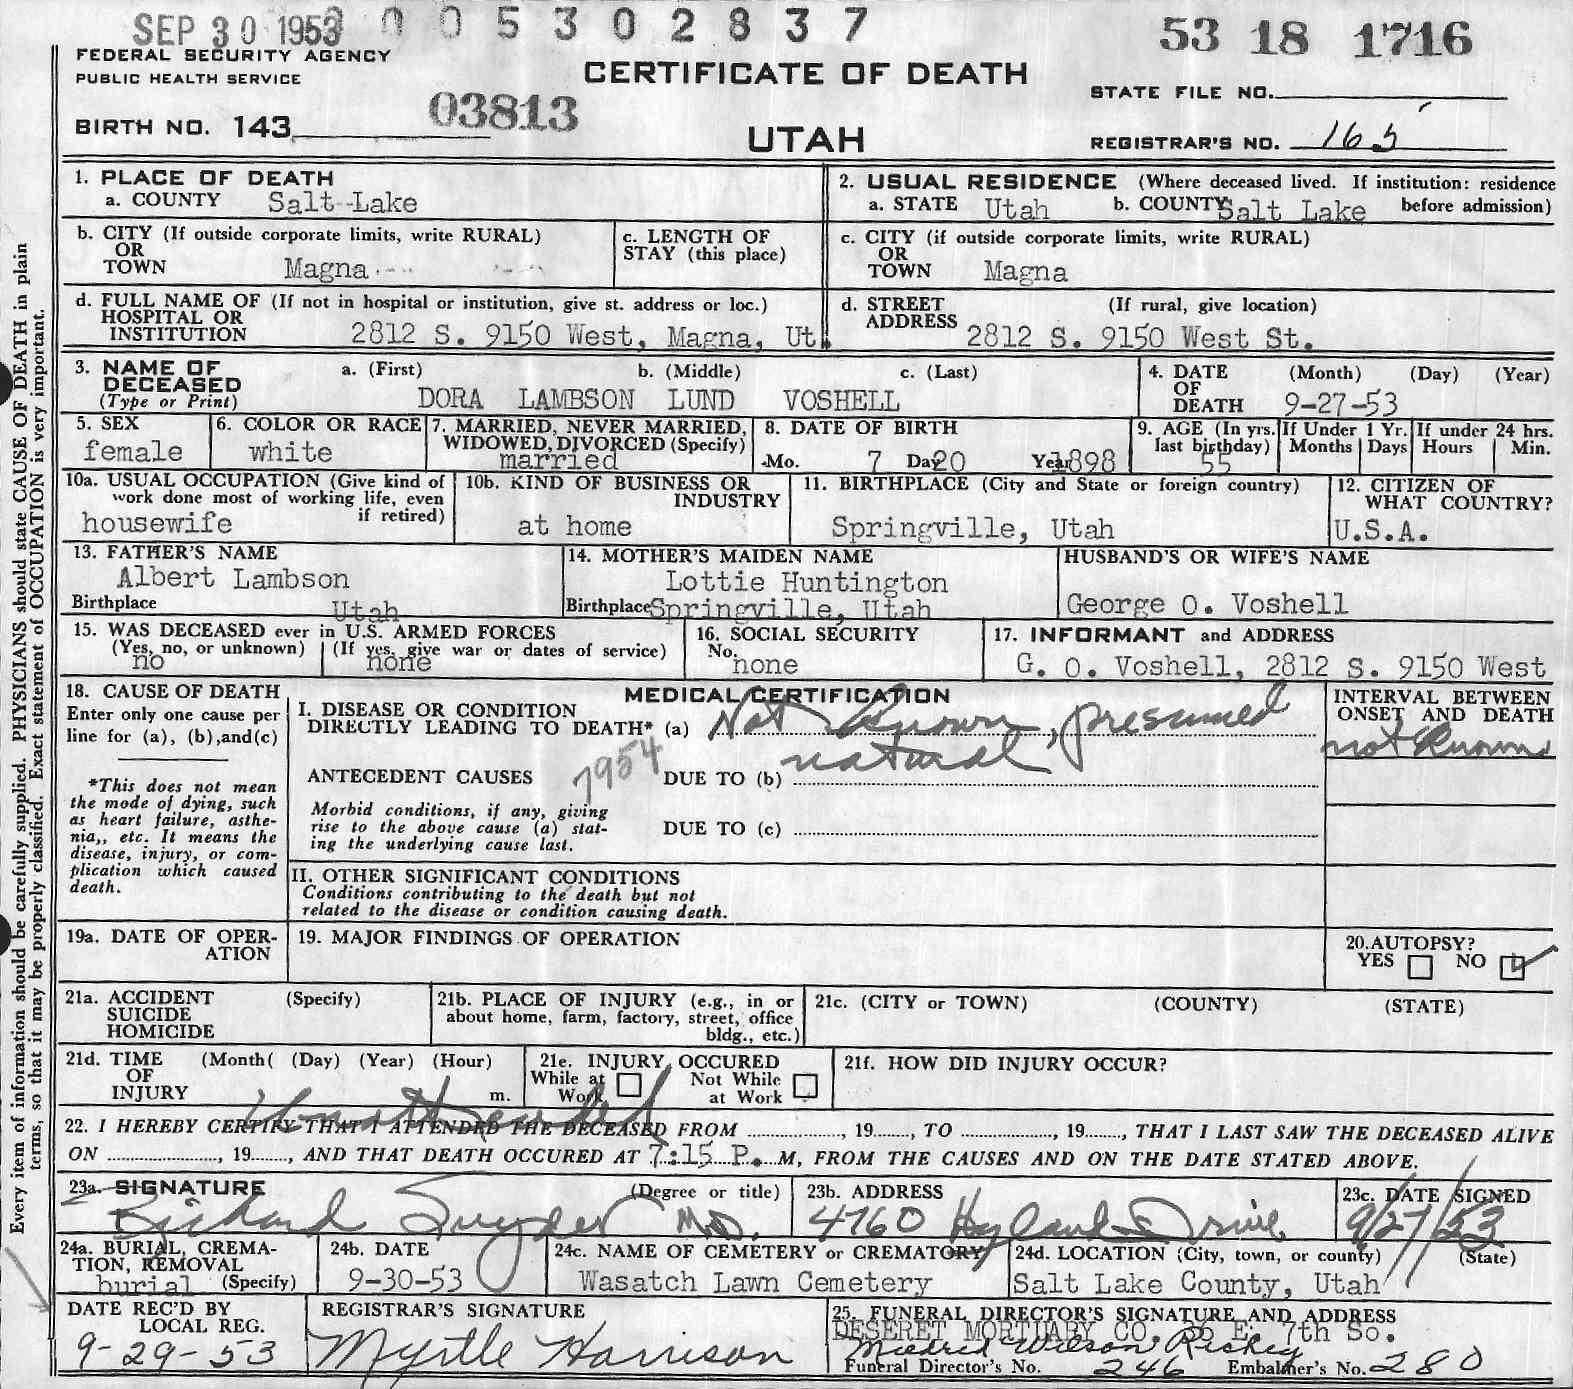 SEP 30 1953 0 0 5 3 0 2 8 3 7
53 18 1716
FEDERAL SECURITY AGENCY
PUBLIC HEALTH SERVICE
CERTIFICATE OF DEATH
STATE FILE NO.
BIRTH NO. 143
03813
UTAH
REGISTRAR'S NO. 165
Every item of information should be carefully supplied. PHYSICIANS should state CAUSE OF DEATH in plain
terms, so that it may be properly classified. Exact statement of OCCUPATION is very important.
1. PLACE OF DEATH
a. COUNTY Salt Lake
2. USUAL RESIDENCE (Where deceased lived. If institution: residence
a. STATE Utah b. COUNTY Salt Lake before admission)
b. CITY (If outside corporate limits, write RURAL)
OR
TOWN Magna
c. LENGTH OF
STAY (this place)
c. CITY (if outside corporate limits, write RURAL)
OR
TOWN Magna
d. FULL NAME OF (If not in hospital or institution, give st. address or loc.)
HOSPITAL OR
INSTITUTION 2812 S. 9150 West, Magna, Ut.
d. STREET (If rural, give location)
ADDRESS 2812 S. 9150 West St.
3. NAME OF a. (First) b. (Middle) c. (Last)
DECEASED
(Type or Print) DORA LAMBSON LUND VOSHELL
4. DATE (Month) (Day) (Year)
OF
DEATH 9-27-53
5. SEX
female
6. COLOR OR RACE
white
7. MARRIED, NEVER MARRIED,
WIDOWED, DIVORCED (Specify)
married
8. DATE OF BIRTH
Mo. 7 Day 20 Year 1898
9. AGE (In yrs.
last birthday)
55
If Under 1 Yr.
Months Days
If under 24 hrs.
Hours Min.
10a. USUAL OCCUPATION (Give kind of
work done most of working life, even
if retired)
housewife
10b. KIND OF BUSINESS OR
INDUSTRY
at home
11. BIRTHPLACE (City and State or foreign country)
Springville, Utah
12. CITIZEN OF
WHAT COUNTRY?
U.S.A.
13. FATHER'S NAME
Albert Lambson
Birthplace Utah
14. MOTHER'S MAIDEN NAME
Lottie Huntington
Birthplace Springville, Utah
HUSBAND'S OR WIFE'S NAME
George O. Voshell
15. WAS DECEASED ever in U.S. ARMED FORCES
(Yes, no, or unknown) (If yes, give war or dates of service)
no none
16. SOCIAL SECURITY
No. none
17. INFORMANT and ADDRESS
G. O. Voshell, 2812 S. 9150 West
18. CAUSE OF DEATH
Enter only one cause per
line for (a), (b),and(c)
*This does not mean
the mode of dying, such
as heart failure, asthe-
nia,, etc. It means the
disease, injury, or com-
plication which caused
death.
MEDICAL CERTIFICATION
I. DISEASE OR CONDITION
DIRECTLY LEADING TO DEATH* (a) Not Known, presumed
natural
7954
ANTECEDENT CAUSES DUE TO (b)
Morbid conditions, if any, giving
rise to the above cause (a) stat-
ing the underlying cause last.
DUE TO (c)
INTERVAL BETWEEN
ONSET AND DEATH
not known
II. OTHER SIGNIFICANT CONDITIONS
Conditions contributing to the death but not
related to the disease or condition causing death.
19a. DATE OF OPER-
ATION
19. MAJOR FINDINGS OF OPERATION
20. AUTOPSY?
YES NO
21a. ACCIDENT (Specify)
SUICIDE
HOMICIDE
21b. PLACE OF INJURY (e.g., in or
about home, farm, factory, street, office
bldg., etc.)
21c. (CITY or TOWN) (COUNTY) (STATE)
21d. TIME (Month( (Day) (Year) (Hour)
OF
INJURY m.
21e. INJURY OCCURED
While at Work Not While at Work
21f. HOW DID INJURY OCCUR?
Unattended
22. I HEREBY CERTIFY THAT I ATTENDED THE DECEASED FROM ........, 19......, TO ........, 19......, THAT I LAST SAW THE DECEASED ALIVE
ON ........, 19......, AND THAT DEATH OCCURED AT 7:15 P. M, FROM THE CAUSES AND ON THE DATE STATED ABOVE.
23a. SIGNATURE (Degree or title)
Richard Snyder M.D.
23b. ADDRESS
4760 Hyland Drive
23c. DATE SIGNED
9/27/53
24a. BURIAL, CREMA-
TION, REMOVAL
burial (Specify)
24b. DATE
9-30-53
24c. NAME OF CEMETERY or CREMATORY
Wasatch Lawn Cemetery
24d. LOCATION (City, town, or county) (State)
Salt Lake County, Utah
DATE REC'D BY
LOCAL REG.
9-29-53
REGISTRAR'S SIGNATURE
Myrtle Harrison
25. FUNERAL DIRECTOR'S SIGNATURE AND ADDRESS
DESERET MORTUARY CO. 36 E. 7th So.
Mildred Wilson Richey
Funeral Director's No. 246 Embalmer's No. 280